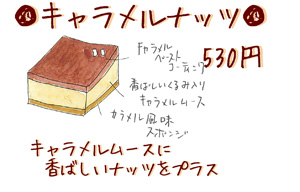 キャラメルナッツ
530円
キャラメル
ペースト
コーティング
香ばしいくるみ入り
キャラメルムース
カラメル風味
スポンジ
キャラメルムースに
香ばしいナッツをプラス